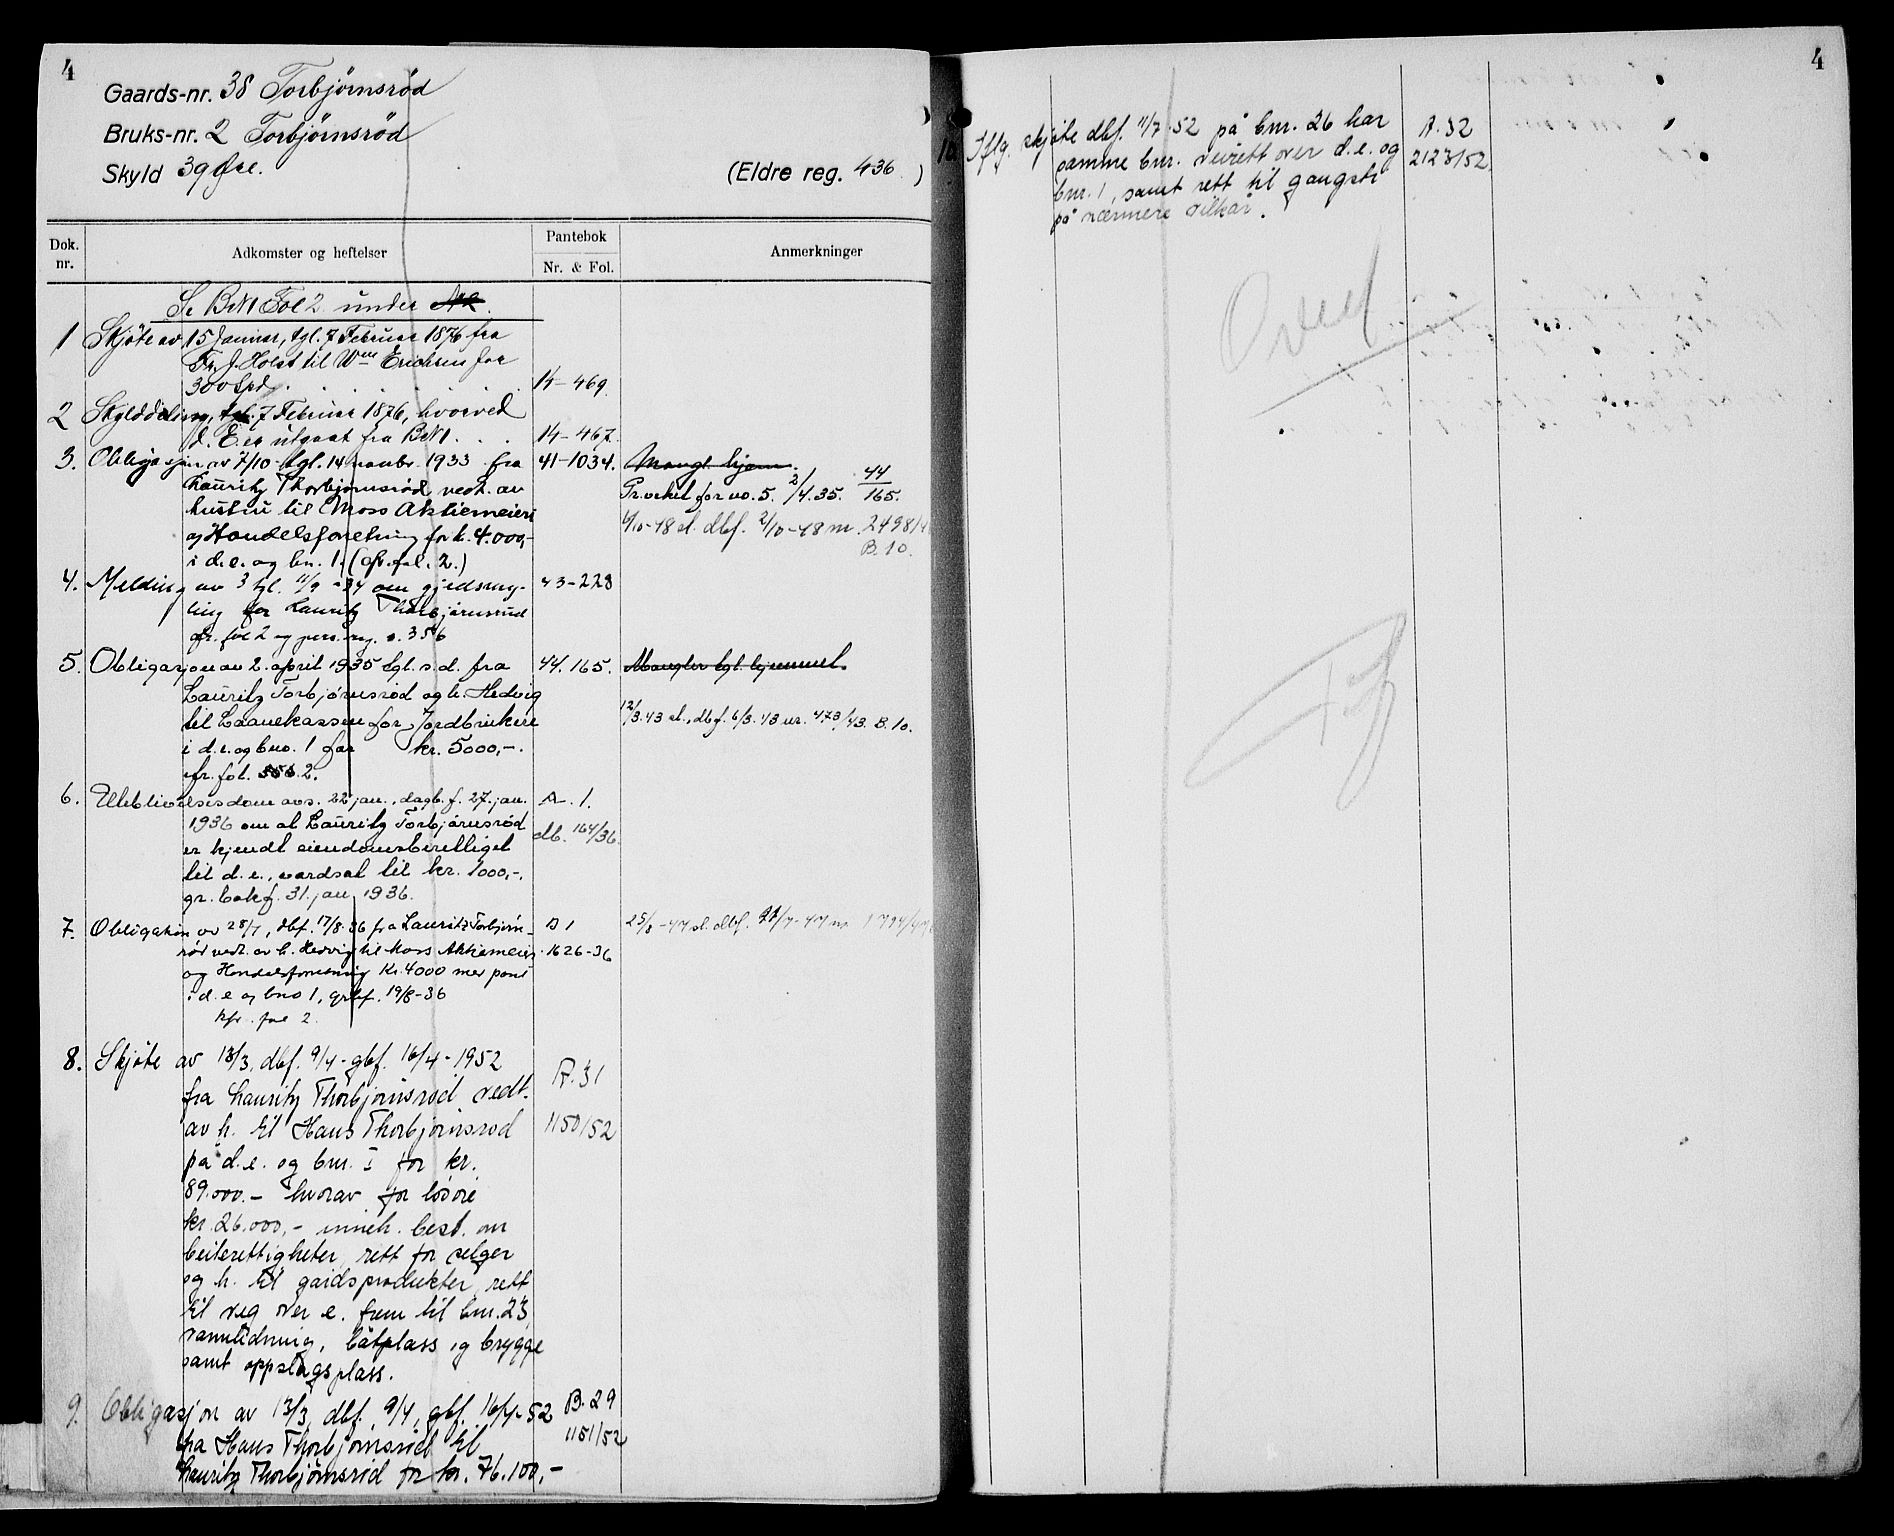 4
Gaards-nr. 38 Torbjørnsrød
Bruks-nr. 2 Torbjørnsrød
Skyld 39 Øre. (Eldre reg. 436 )
Dok. nr. Adkomster og heftelser Pantebok Nr. & Fol. Anmerkninger
Se BrN1 Fol 2 under
1 Skjøte av 15 Januar, tgl. 7 Februar 1876 fra
Fr. J. Holst til Wm Erichsen for
300 Spd. 14-469.
2 Skylddeling, tgl. 7 Februar 1876, hvorved
d. E. er utgaat fra BrN1 . . . 14-467.
3. Obligasjon av 7/10 tgl. 14 novbr. 1933 fra 41-1034. Mangl. hjem.
Lauritz Thorbjørnsrød vedt. av Pr. veket for no. 5. 2/4.35. 44/165.
hustru til Moss Aktiemeieri
og Handelsforretning for k. 4.000,- 6/10-48 sl. dbf. 2/10-48 nr. 2498/4
i d.e. og bn. 1. (cfr. fol. 2.) B.10.
4. Melding av 3 tgl. 11/9 -34 om gjeldsmeg- 43-228
ling for Lauritz Thorbjørnsrud
cfr. fol 2 og pers. reg. s. 356
5. Obligasjon av 2. april 1935 tgl. s.d. fra 44.165. Mangler tgl. hjemmel.
Lauritz Torbjørnsrød og h. Hedvig
til Laanekassen for Jordbrukere 12/3.43 sl., dbf. 6/3.43 nr. 473/43. B.10.
i d.e. og bno. 1 for kr. 5000,-.
cfr. fol. 2.
6. Uteblivelsesdom avs. 22 jan., dagb.f. 27. jan. A. 1.
1936 om at Lauritz Torbjørnsrød db. 164/36.
er kjendt eiendomsberettiget
til d.e., verdsat til kr. 1000,-.
gr. bokf. 31. jan. 1936.
7. Obligasjon av 28/7, dbf. 17/8-36 fra Lauritz Torbjørns- B 1 25/8-47 sl. dbf. 21/7-47 nr. 1794/47
rød vedt. av h. Hedvig til Moss Aktiemeieri 1626-36
og Handelsforretning kr. 4000 mer pant
i d.e og bno 1, grbf. 19/8-36
kfr. fol 2.
8. Skjøte av 13/3, dbf. 9/4 - gbf. 16/4 - 1952
fra Lauritz Thorbjørnsrød vedt. A.31
av h. til Hans Thorbjørnsrød 1150/52
på d.e. og bnr. 1 for kr.
89.000.- hvorav for løsøre
kr. 26.000,- inneh. best. om
beiterettigheter, rett for selger
og h. til gårdsprodukter, rett
til veg over e. frem til bnr. 23,
vannledning, båtplass og brygge
samt oppslagsplass.
9. Obligasjon av 13/3, dbf. 9/4, gbf. 16/4-52 B.29
fra Hans Thorbjørnsrød til 1151/52
Lauritz Thorbjørnsrød for kr. 76.100,-
4
10 Iflg. skjøte dbf. 11/7-52 på bnr. 26 har A.32
samme bnr. veirett over d.e. og 2123/52.
bnr. 1, samt rett til gangsti
på nærmere vilkår.